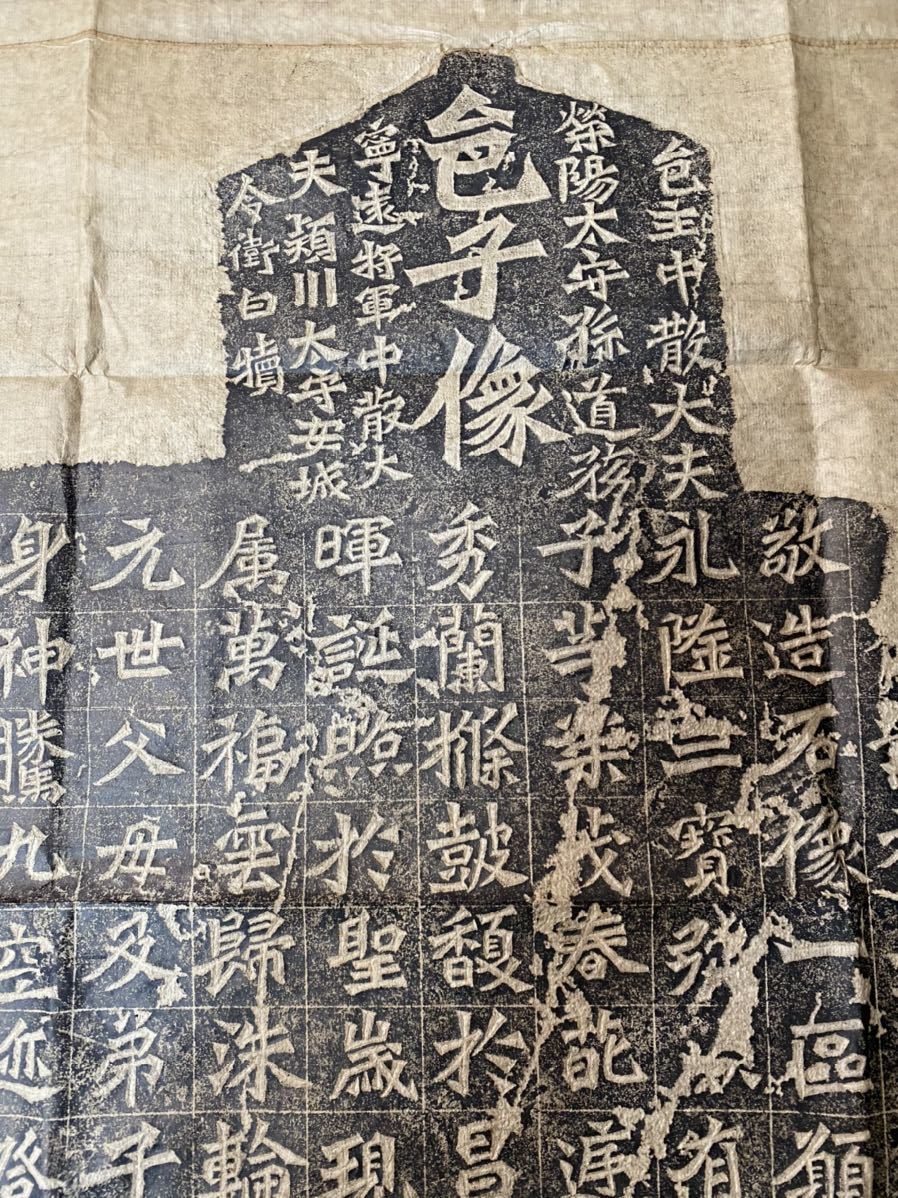 邑子像
邑主中散大夫
滎陽太守孫道務
寧遠將軍中散大
夫穎川太守安城
令衛白犢
敬造石像一區願
永隆三寶弥有
子等榮茂春葩庭
秀蘭條鼓馥於昌
暉誕照於聖歲現
属萬福雲歸洙輪
元世父母及弟子
身神騰九空迹登